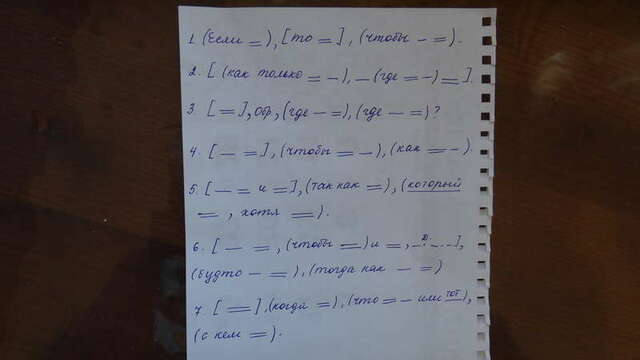 1. (Если =), [то =], (чтобы – =).
2. [. (как только = –), – (где = –) =].
3. [=], обр, (где – =), (где – =)?
4. [– =], (чтобы = –), (как = –).
5. [– = и =], (так как =), (который
=, хотя =).
6. [ – =, (чтобы =) и =, –.д.–..],
(будто – =), (тогда как – =)
7. [=], (когда =), (что = – или тот),
(с кем =).